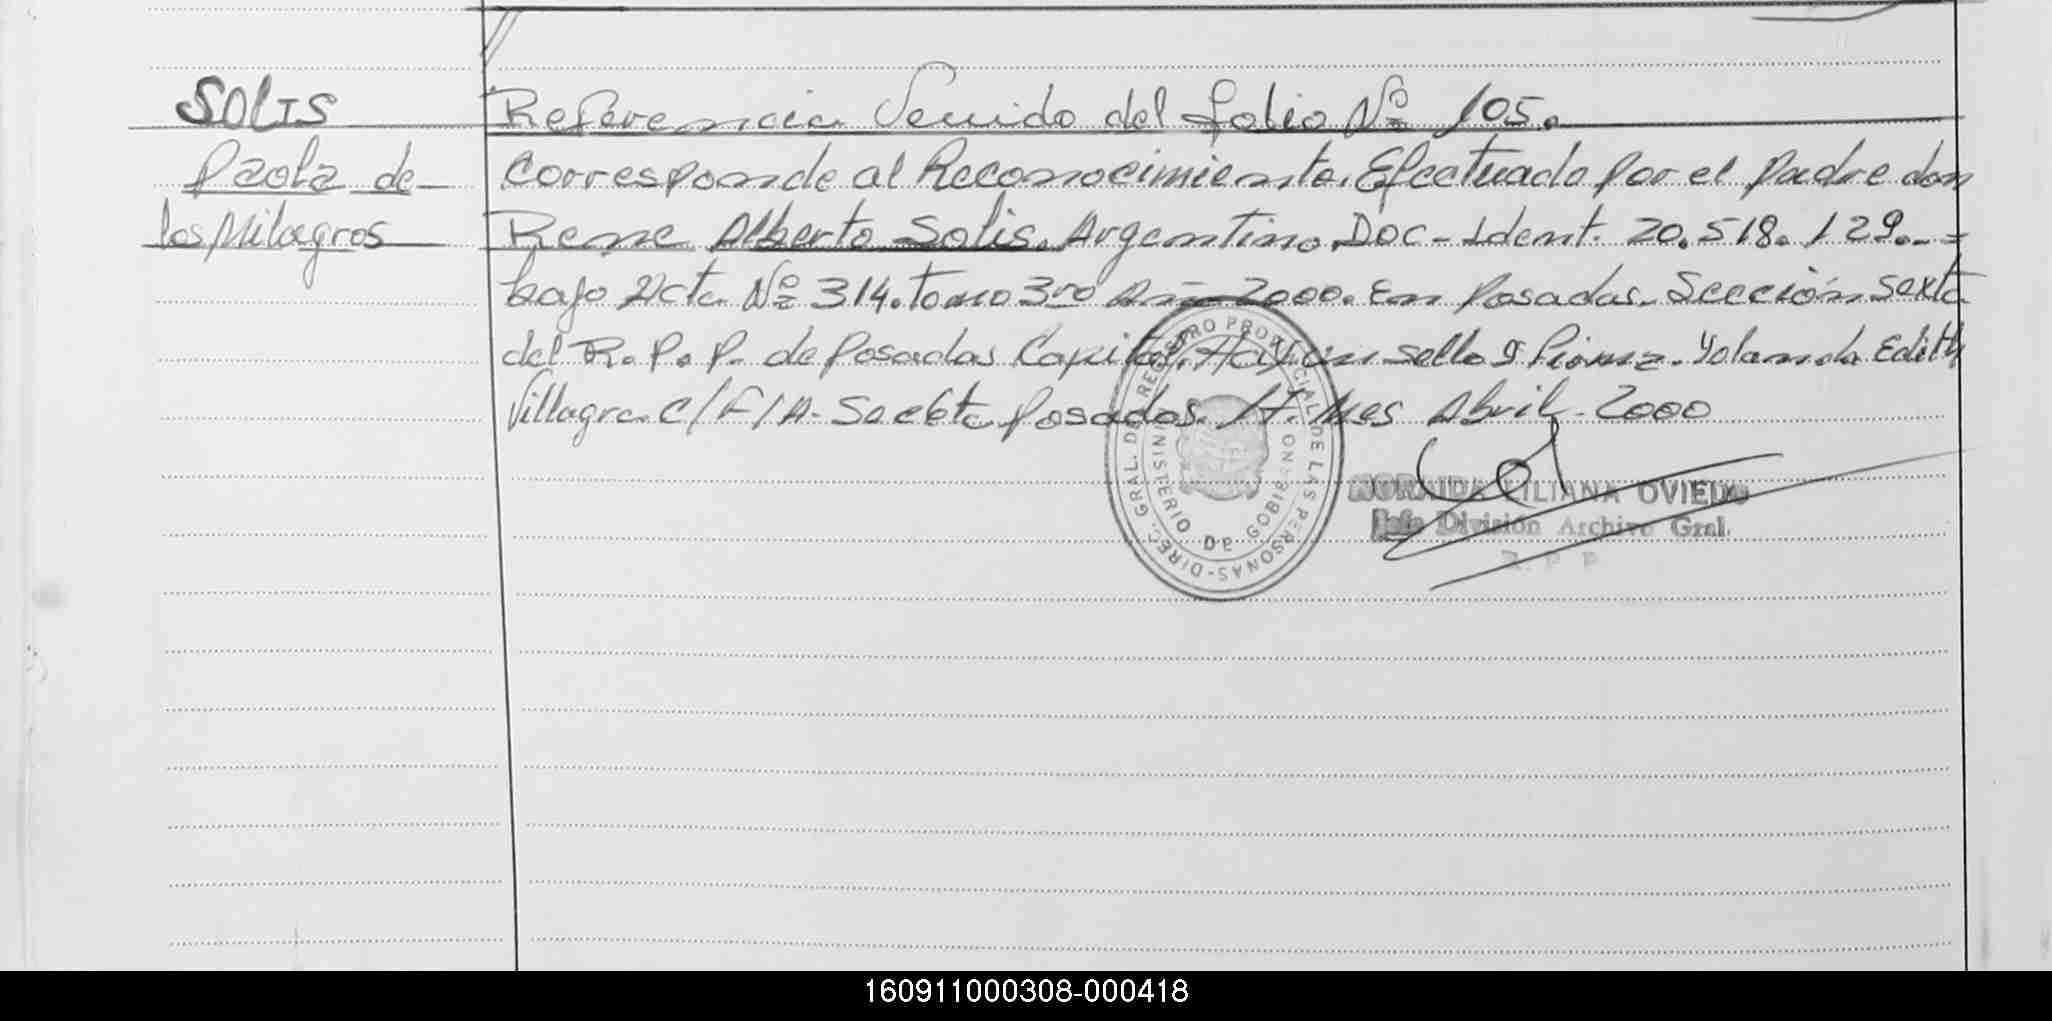 SOLIS
Paola de
los Milagros
Referencia Venido del folio Nº 105.
Corresponde al Reconocimiento. Efectuado por el padre don
Rene Alberto Solis. Argentino. Doc-Ident. 20.518.129.-=
bajo Acta Nº 314. tomo 3ro Año 2000. En Posadas. Sección sexta
del R.P.P. de Posadas Capital. Hay un sello y firma. Yolanda Edith
Villagra C/F/A- Posadas. Mes Abril-2000
DIREC. GRAL. DEL REGISTRO PROVINCIAL DE LAS PERSONAS-
MINISTERIO DE GOBIERNO
NORAIDA LILIANA OVIEDO
Jefe División Archivo Gral.
R. P. P.
160911000308-000418